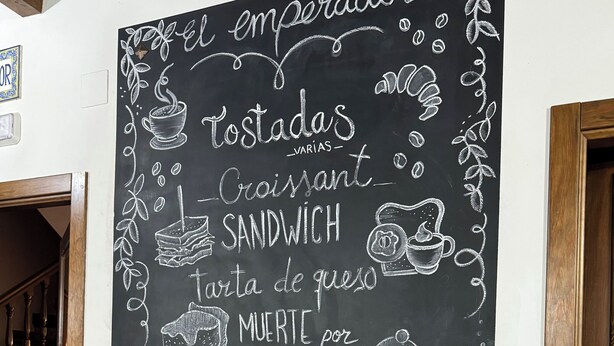 El emperador
OR
Tostadas
-VARIAS-
Croissant
SANDWICH
tarta de queso
MUERTE por